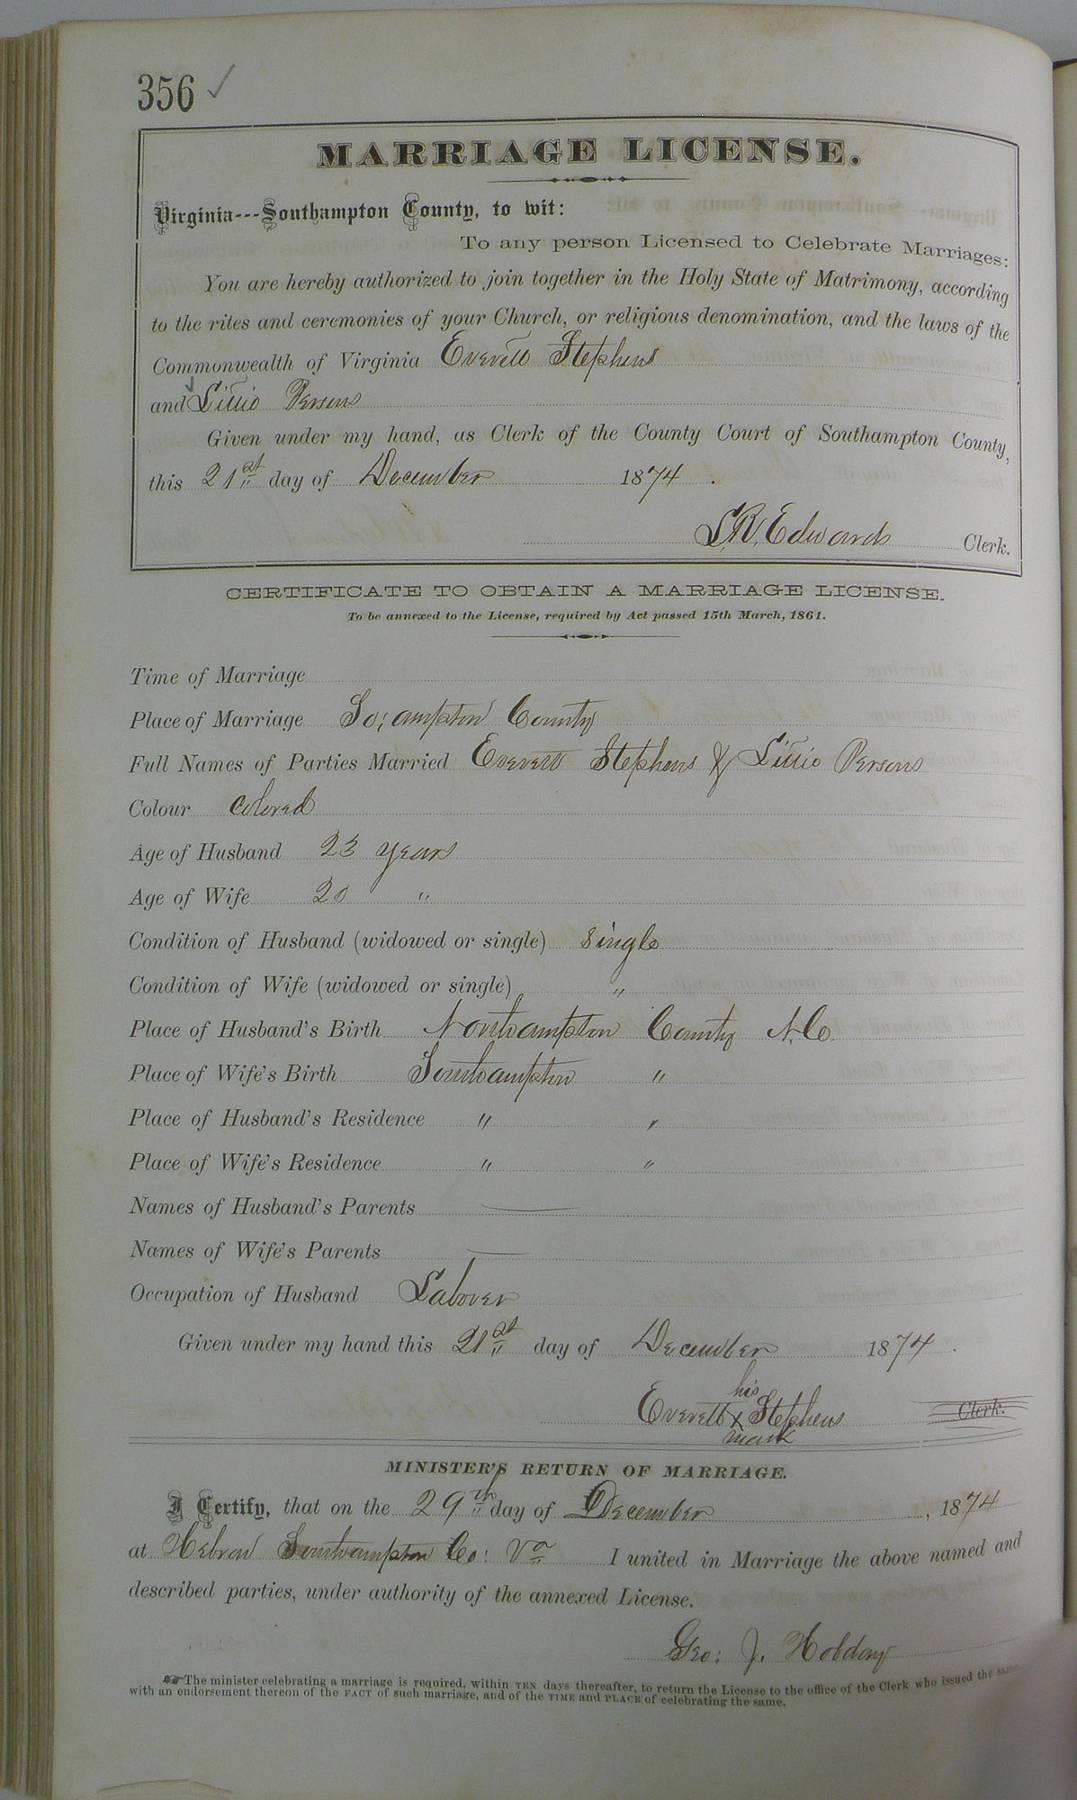 356 ✓
MARRIAGE LICENSE.
Virginia---Southampton County, to wit:
To any person Licensed to Celebrate Marriages:
You are hereby authorized to join together in the Holy State of Matrimony, according
to the rites and ceremonies of your Church, or religious denomination, and the laws of the
Commonwealth of Virginia Everett Stephens
and Littie Persons
Given under my hand, as Clerk of the County Court of Southampton County,
this 21st day of December 1874.
L.R. Edwards Clerk.
CERTIFICATE TO OBTAIN A MARRIAGE LICENSE.
To be annexed to the License, required by Act passed 15th March, 1861.
Time of Marriage
Place of Marriage So:ampton County
Full Names of Parties Married Everett Stephens & Littie Persons
Colour Colored
Age of Husband 23 years
Age of Wife 20 "
Condition of Husband (widowed or single) single
Condition of Wife (widowed or single) "
Place of Husband's Birth Northampton County N.C.
Place of Wife's Birth Southampton "
Place of Husband's Residence " "
Place of Wife's Residence " "
Names of Husband's Parents —
Names of Wife's Parents —
Occupation of Husband Laborer
Given under my hand this 21st day of December 1874.
his
Everett x Stephens Clerk.
mark
MINISTER'S RETURN OF MARRIAGE.
I Certify, that on the 29th day of December, 1874
at Hebron Southampton Co: Va I united in Marriage the above named and
described parties, under authority of the annexed License.
Geo: J. Hobday
☞The minister celebrating a marriage is required, within TEN days thereafter, to return the License to the office of the Clerk who issued the same
with an endorsement thereon of the FACT of such marriage, and of the TIME and PLACE of celebrating the same.